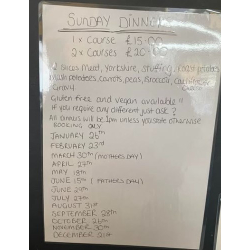 SUNDAY DINNER
1 x Course £15.00
2 x Courses £20.00
2 slices Meat, Yorkshire, Stuffing, roast potatoes
mash potatoes, carrots, peas, Broccoli, Cauliflower
Gravy
Gluten free and vegan available
if you require any different just ask?
All dinners will be 1pm unless you state otherwise
BOOKING ONLY
JANUARY 26th
FEBRUARY 23rd
MARCH 30th (MOTHERS DAY)
APRIL 27th
MAY 18th
JUNE 15th (FATHERS DAY)
JUNE 29th
JULY 27th
AUGUST 31st
SEPTEMBER 28th
OCTOBER 26th
NOVEMBER 30th
DECEMBER 21st